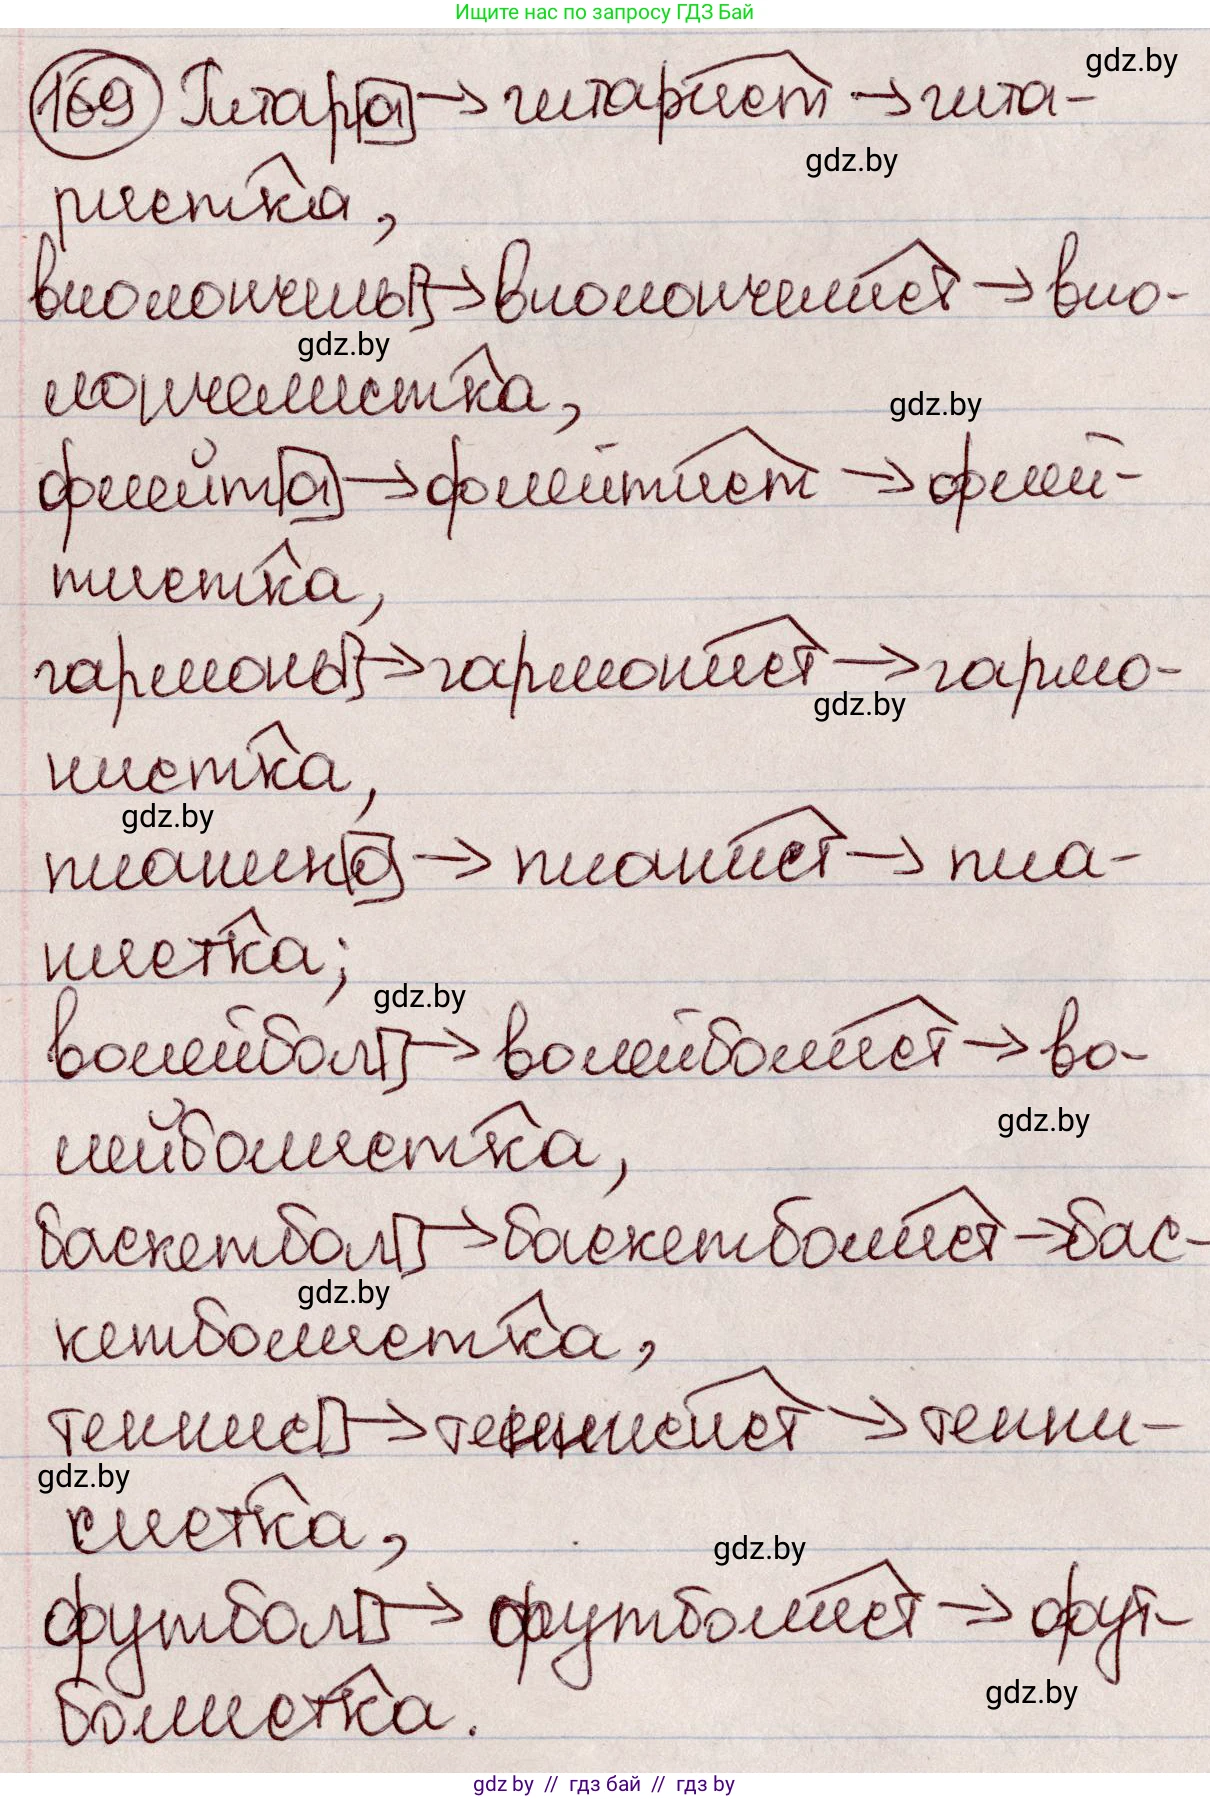 Ищите нас по запросу ГДЗ Бай
gdz.by
169 Гитара → гитарист → гита-
gdz.by
ристка,
виолончель → виолончелист → вио-
gdz.by
лончелистка,
gdz.by
флейта → флейтист → флей-
тистка,
гармонь → гармонист → гармо-
gdz.by
нистка,
gdz.by
пианино → пианист → пиа-
нистка;
gdz.by
волейбол → волейболист → во-
gdz.by
лейболистка,
баскетбол → баскетболист → бас-
gdz.by
кетболистка,
теннис → теннисист → тенни-
gdz.by
систка,
gdz.by
футбол → футболист → фут-
gdz.by
болистка.
gdz by // гдз бай // гдз by